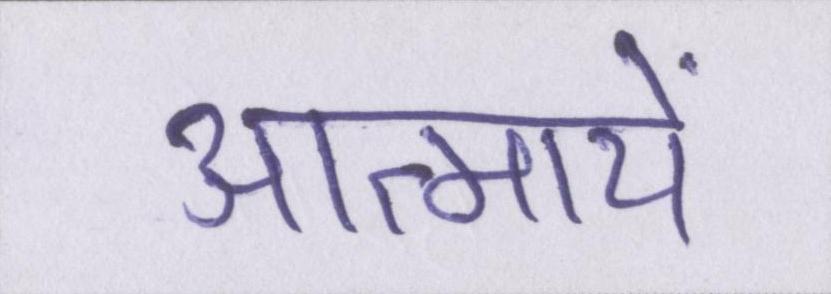 आत्मायें